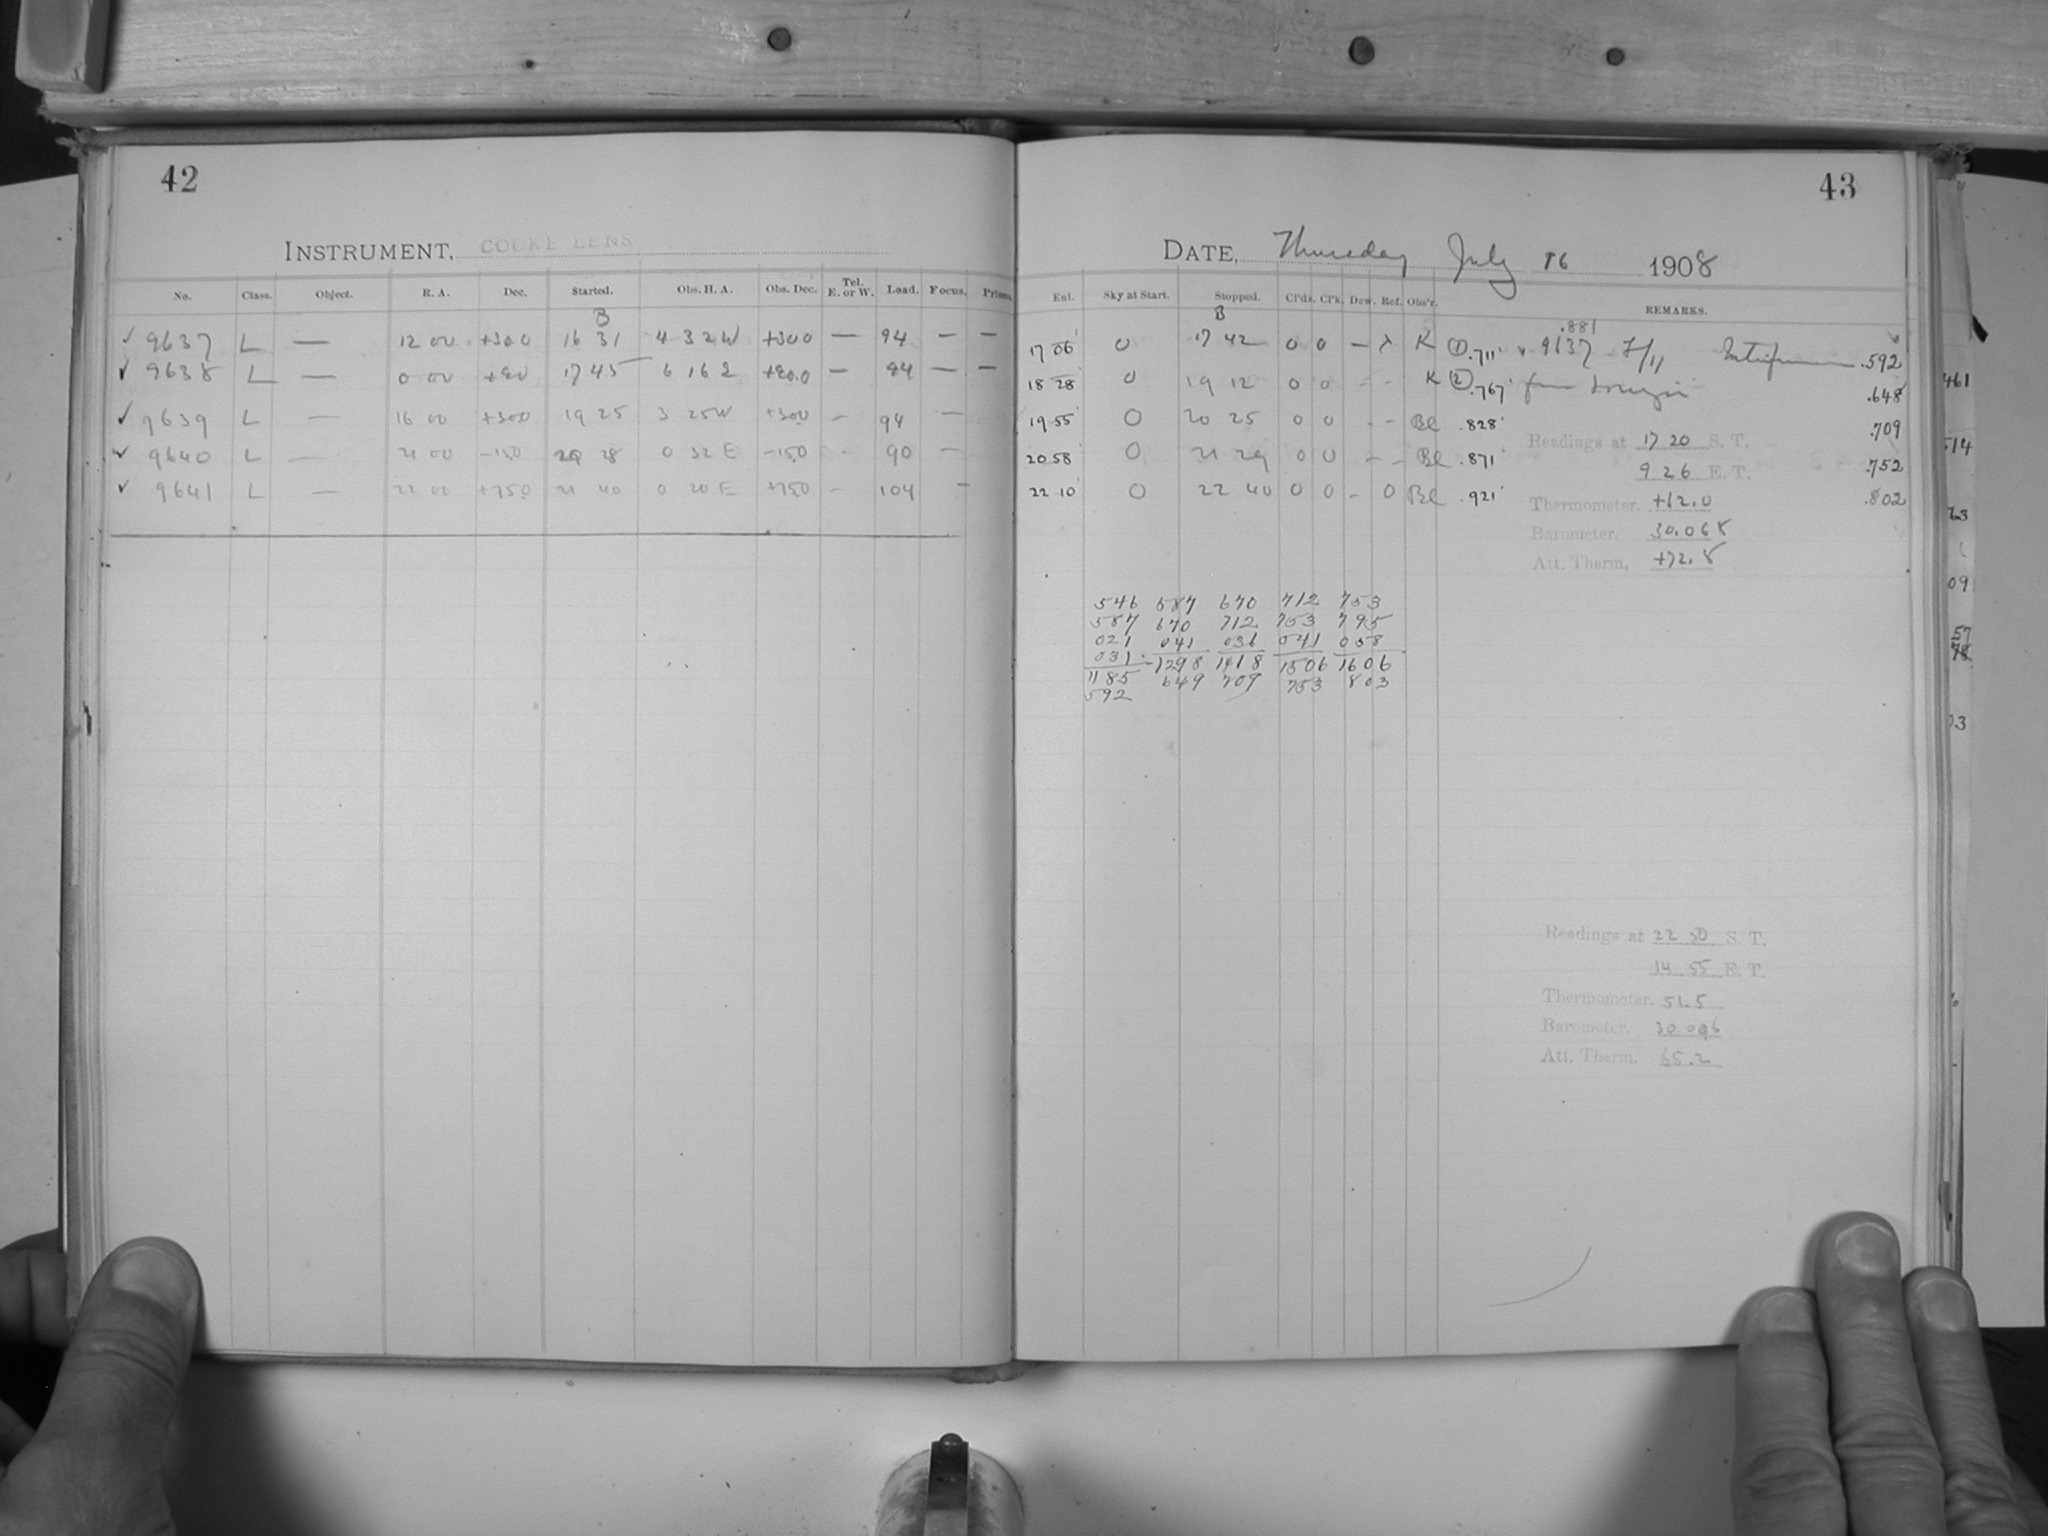 42
INSTRUMENT, COOKE LENS
No. Class. Object. R. A. Dec. Started. Obs. H. A. Obs. Dec. Tel. E. or W. Load. Focus. Prisms.
B
✓ 9637 L — 12 00 +300 16 31 4 32W +300 — 94 — —
✓ 9638 L — 0 00 17 45 6 16 — 94 — —
✓ 9639 L — 16 00 +300 19 25 3 25W +300 — 94 —
✓ 9640 L — 21 00 -150 28 0 32 E -150 — 90 —
✓ 9641 L — 22 00 +750 21 40 0 20 E +750 — 104 —
43
DATE, Thursday July 16 1908
Ext. Sky at Start. Stopped. Cl'ds. Cl'k. Dew. Ref. Obs'r. REMARKS.
B
.881
17 06 0 17 42 0 0 — K (1) .711 9637 .592
18 28 0 19 12 0 0 - - K (2) .767 from .648
19 55 0 20 25 0 0 - - Bl .828 .709
Readings at 17 20 S. T.
20 58 0 21 29 0 0 - - Bl .871 .752
9 26 E. T.
22 10 0 22 40 0 0 - 0 Bl .921 .802
Thermometer. +62.0
Barometer. 30.068
Att. Therm. +72.8
546 587 670 712 753
587 670 712 753 795
021 041 036 041 058
031 1298 1418 1506 1606
1185 649 709 753 803
592
Readings at 22 50 S. T.
14 55 E. T.
Thermometer. 51.5
Barometer. 30.096
Att. Therm. 65.2
461
514
63
09
57
78
03